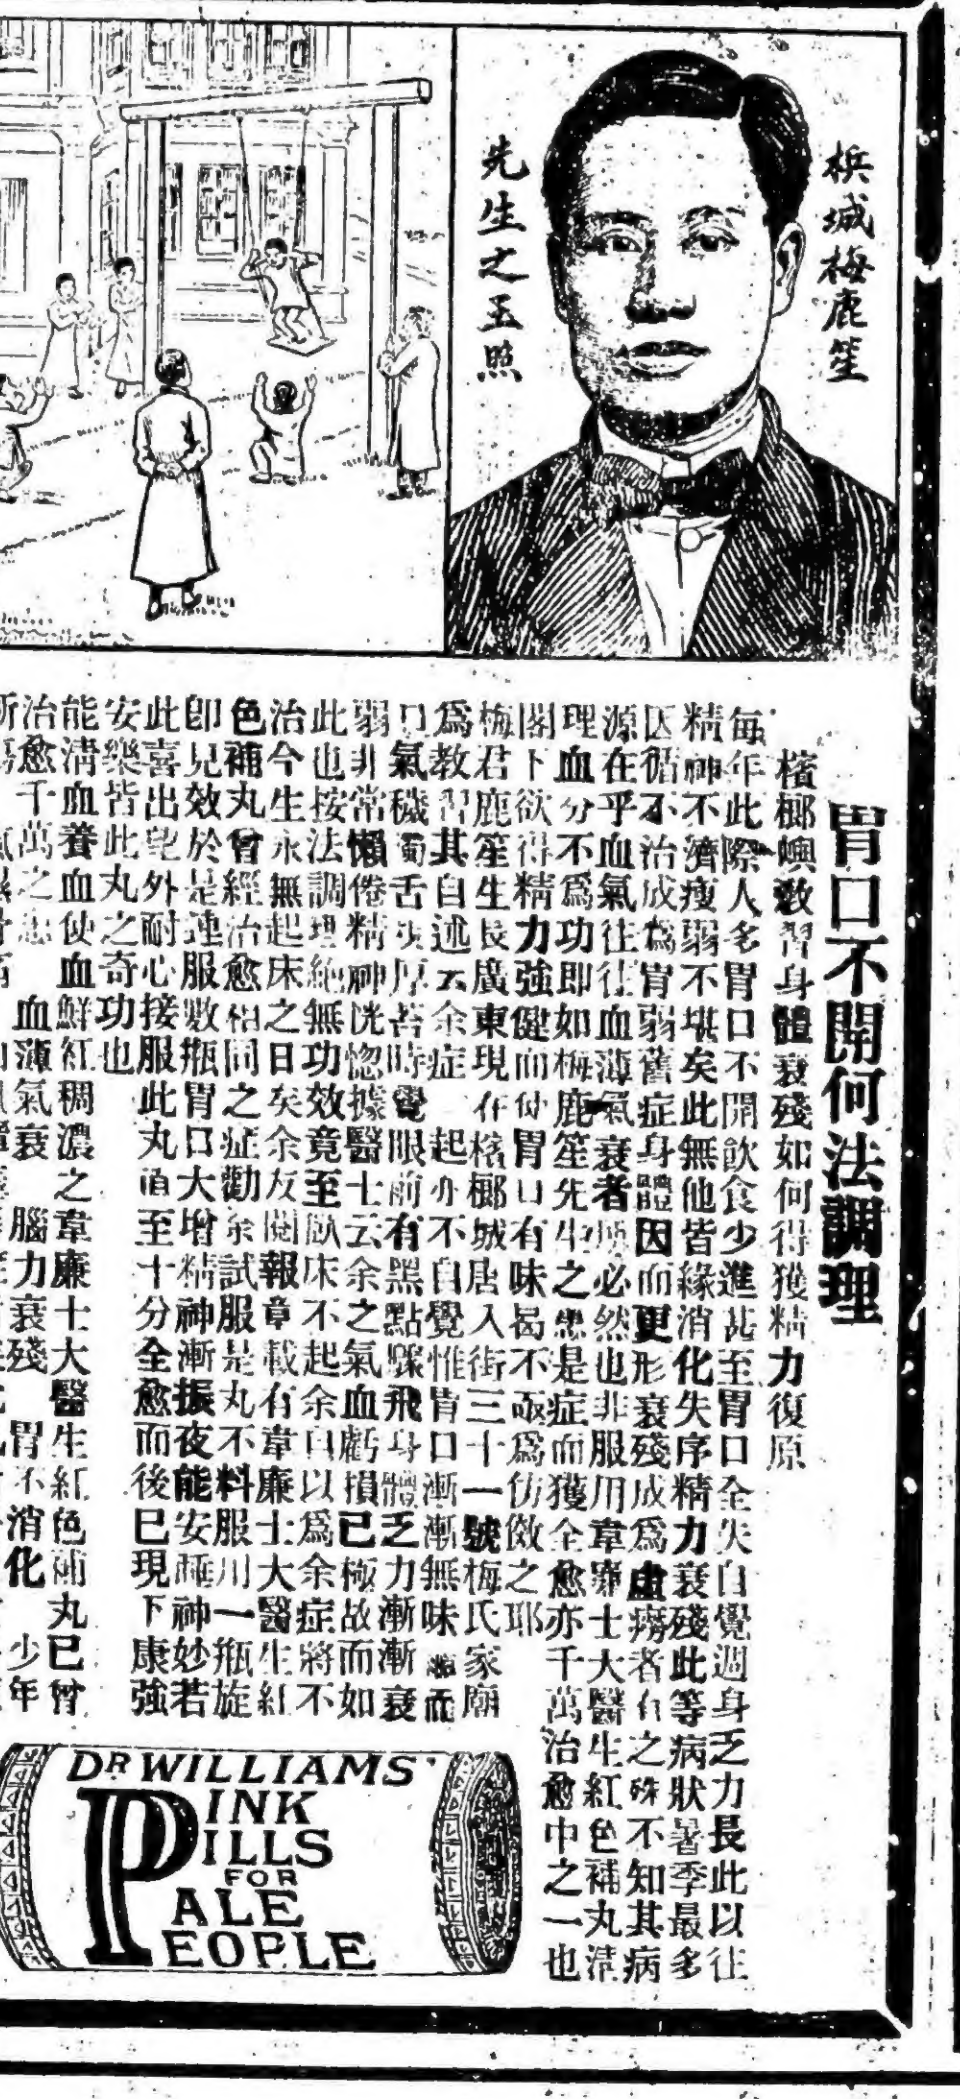 梹城梅鹿笙
先生之玉照
胃口不開何法調理
檳榔嶼敎習身體衰殘如何得獲精力復原
每年此際人多胃口不開飲食少進甚至胃口全失自覺週身乏力長此以往
精神不濟瘦弱不堪矣此無他皆緣消化失序精力衰殘此等病狀暑季最多
因循不治成爲胃弱舊症身體因而更形衰殘成爲虛癆者有之殊不知其病
源在乎血氣往往血薄氣衰者必然也非服用韋廉士大醫生紅色補丸清
理血分不爲功即如梅鹿笙先生之患是症而獲全愈亦千萬治愈中之一也
閣下欲得精力強健而使胃口有味曷不亟爲仿傚之耶
梅君鹿笙生長廣東現在檳榔城唐人街三十一號梅氏家廟
爲教習其自述云余症 起亦不自覺惟胃口漸漸無味而
口氣穢濁舌厚苔時覺眼前有黑點驟飛身體乏力漸漸衰
弱非常懶倦精神恍惚據醫士云余之氣血虧損已極故而如
此也按法調理絕無功效竟至臥床不起余自以爲余症將不
治今生永無起床之日矣余友閱報章載有韋廉士大醫生紅
色補丸曾經治愈相同之症勸余試服是丸不料服用一瓶旋
卽見效於是連服數瓶胃口大增精神漸振夜能安睡神妙若
此喜出望外耐心接服此丸直至十分全愈而後已現下康強
安樂皆此丸之奇功也
能清血養血使血鮮紅稠濃之韋廉士大醫生紅色補丸已曾
治愈千萬之患 血薄氣衰 腦力衰殘 胃不消化 少年
DR WILLIAMS'
PINK
PILLS
FOR
PALE
PEOPLE